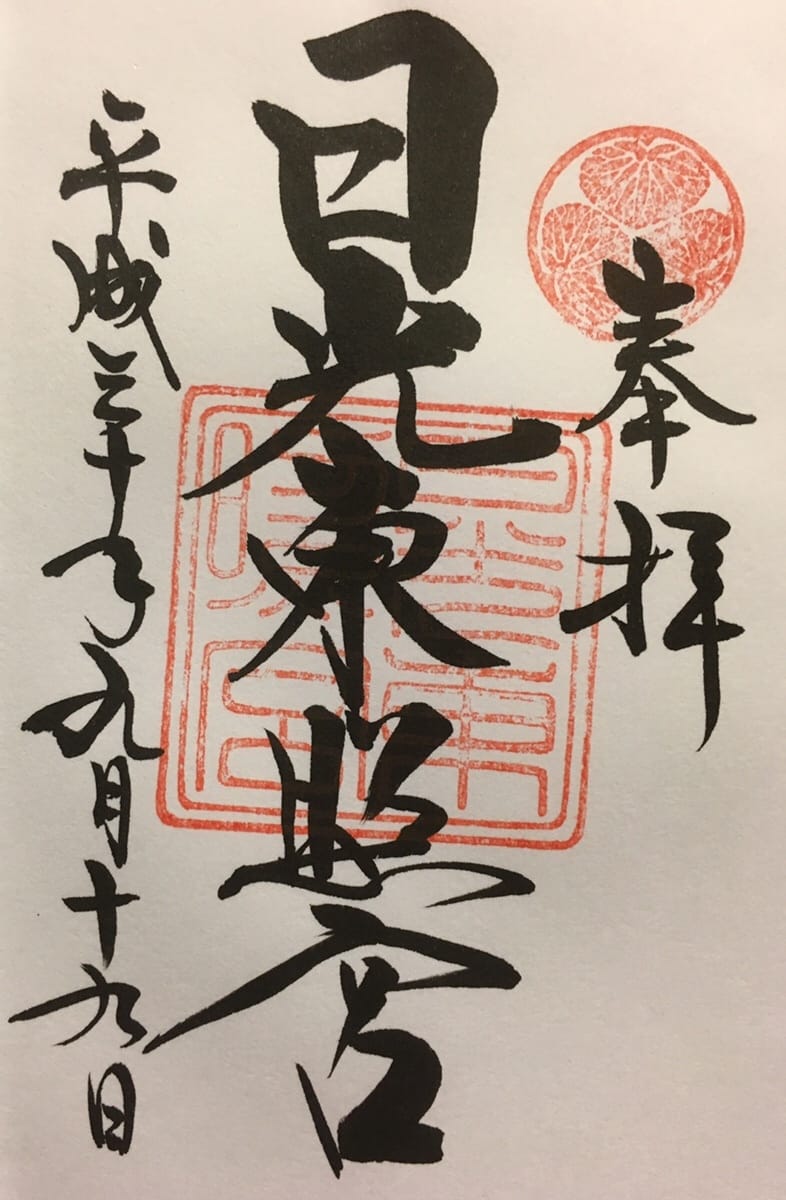 奉拝
日光東照宮
平成三十年九月十九日